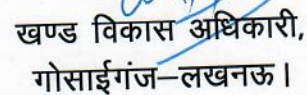 खण्ड विकास अधिकारी,
गोसाईगंज–लखनऊ।